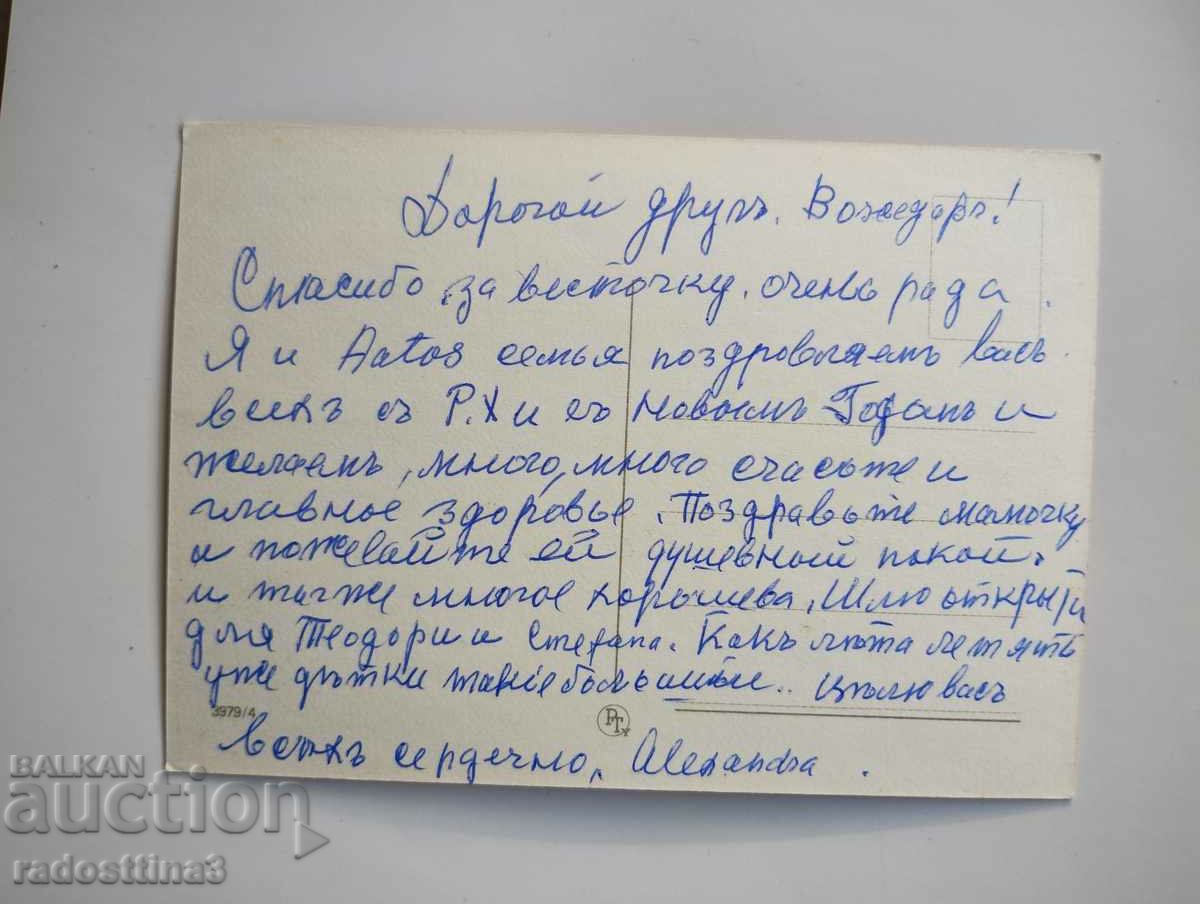 Дорогой другъ. Божедаръ!
Спасибо за весточку. очень рада.
Я и Aatos семья поздровляемъ васъ
всихъ съ Р.Х и съ Новоемъ Годомъ и
желаемъ, много, много счастьте и
главное здоровье. Поздравьте мамочку
и пожелайте ей душевный покой.
и также многое хорошева. Шлю открыти
для Теодори и Стефана. Какъ лѣта летятъ
уже дѣтки такіе большыи.. цѣлю васъ
3979/4
РТ
всѣхъ сердечно, Alexandra.
BALKAN
auction
radosttina3